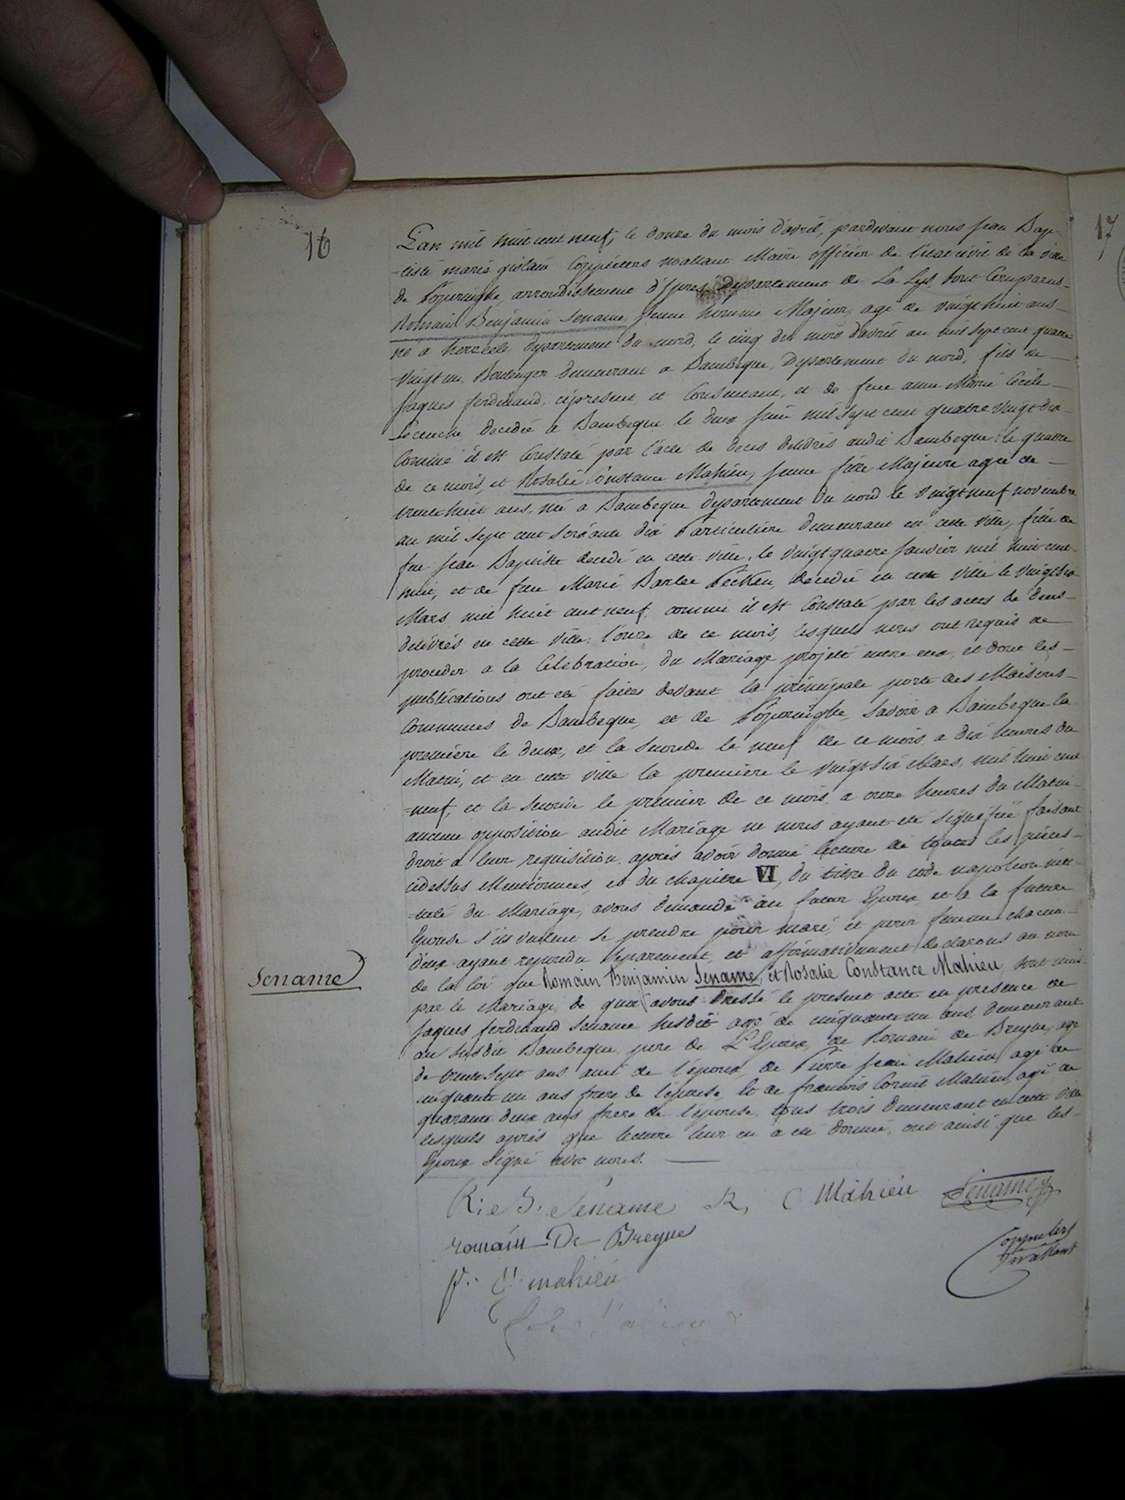 16
17
L'an mil huit cent neuf, le douze du mois d'avril, pardevant nous jean Bap-
-tiste marie gislain Coppieters wallant Maire officier de l'etat civil de la ville
de Poperinghe, arrondissement d'ypres, département de La Lys sont Comparus-
Romain Benjamin Sename, jeune homme Majeur, agé de vingt huit ans
né à herzeele département du nord, le cinq du mois d'avril au mil sept cent quatre
-vingt un, Boulenger demeurant a Bambeque, Departement du nord, fils de
jaques ferdinand, ci present et Consentant, et de feue anne Marie Cecile
decedée à Bambeque le deux juin mil sept cent quatre vingt dix
Comme il est Constaté par l'acte de deces delivrés audit Bambeque, le quatre
de ce mois, et Rosalie Constance Mahieu, jeune fille Majeure agée de
trente huit ans, née à Bambeque département du nord le vingt neuf novembre
au mil sept cent soixante dix Particuliere demeurant en cette ville, fille de
feu jean Baptiste decedé en cette ville, le vingt quatre janvier mil huit cent
et de feue Marie Barbe decedée en cette ville le vingt
Mars mil huit cent neuf, comme il est Constaté par les actes de deces
delivrés en cette ville, l'onze de ce mois, lesquels nous ont requis de
proceder a la Célébration, du Mariage projetté entre eux, et dont les
publications ont été faites devant la principale porte des Maisons
Communes de Bambeque, et de Poperinghe, Savoir a Bambeque la
premiere le deux, et la seconde le neuf de ce mois a dix heures du
Matin, et en cette ville la premiere le vingt six Mars, mil huit cent
-neuf, et la seconde le premier de ce mois a onze heures du Matin
aucune opposition audit Mariage ne nous ayant été signifiée faisant
droit a leur requisition, aprés avoir donné lecture de toutes les pieces
cidessus Mentionnées, et du chapitre VI, du titre du code napoleon inti-
-tulé du Mariage, avons demandé au futur Epoux, et a la future
Epouse s'ils veulent se prendre pour mari, et pour femme chacun
d'eux ayant repondu séparement, et affirmativement declarons au nom
de la loi que Romain Benjamin Sename, et Rosalie Constance Mahieu, sont unis
par le Mariage, de quoi avons dressé le present acte en presence de
jaques ferdinand Sename susdit agé de cinquante un ans demeurant
au susdit Bambeque, pere de L'Epoux, de Romain de Bruyne, agé
de trente sept ans ami de l'époux, de Pierre jean Mahieu, agé de
cinquante un ans frere de l'epouse, et de francois Corneil Mahieu, agé de
quarante deux ans frere de l'epouse, tous trois demeurant en cette ville
lesquels aprés que lecture leur en a été donnée, ont ainsi que les
Epoux Signé avec nous.
Sename
R: B: Sename R, C Mahieu Sename
romain De Breyne
p: j: mahieu
Coppieters
Wallant